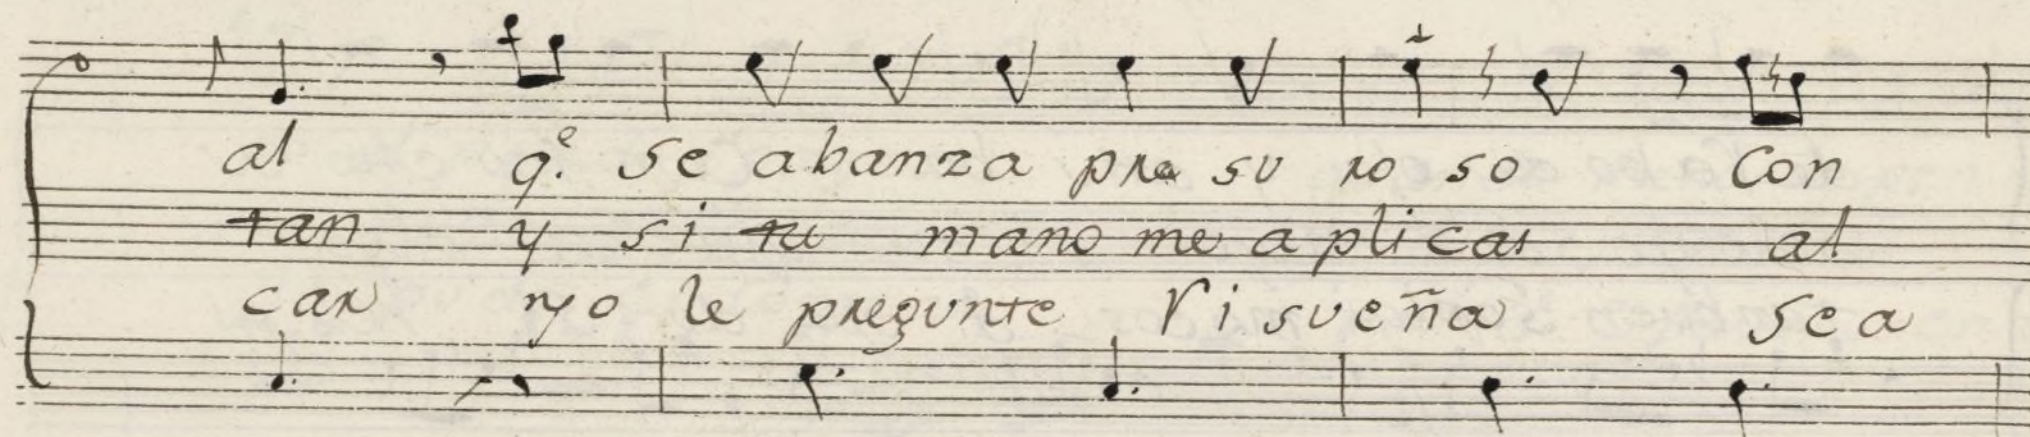 al q.e se abanza pre su ro so Con
tan y si tu mano me a pli cas al
car y o le pregunte Ri sueña sea